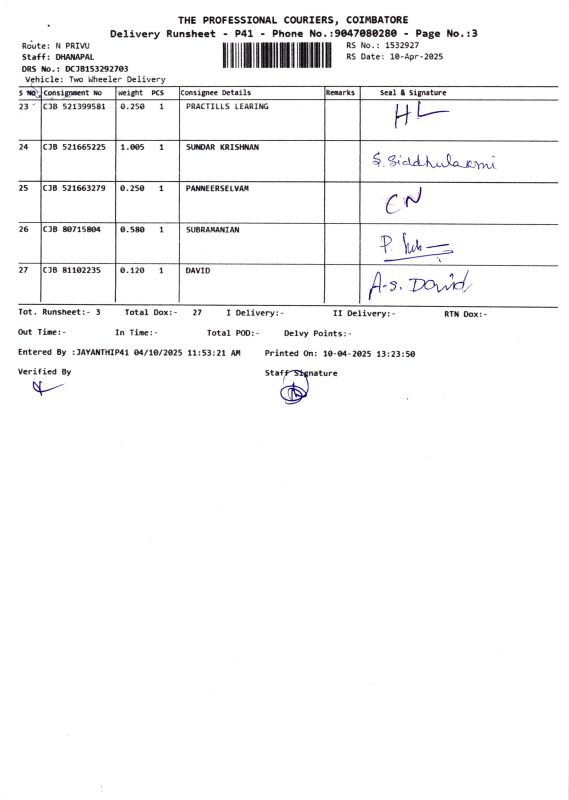 THE PROFESSIONAL COURIERS, COIMBATORE
Delivery Runsheet - P41 - Phone No.:9047080280 - Page No.:3
Route: N PRIVU RS No.: 1532927
Staff: DHANAPAL RS Date: 10-Apr-2025
DRS No.: DCJB153292703
Vehicle: Two Wheeler Delivery
S No Consignment No Weight PCS Consignee Details Remarks Seal & Signature
23 CJB 521399581 0.250 1 PRACTILLS LEARING HL
24 CJB 521665225 1.005 1 SUNDAR KRISHNAN S. Siddhulaxmi
25 CJB 521663279 0.250 1 PANNEERSELVAM
26 CJB 80715804 0.580 1 SUBRAMANIAN
27 CJB 81102235 0.120 1 DAVID A-S. David
Tot. Runsheet:- 3 Total Dox:- 27 I Delivery:- II Delivery:- RTN Dox:-
Out Time:- In Time:- Total POD:- Delvy Points:-
Entered By :JAYANTHIP41 04/10/2025 11:53:21 AM Printed On: 10-04-2025 13:23:50
Verified By Staff Signature